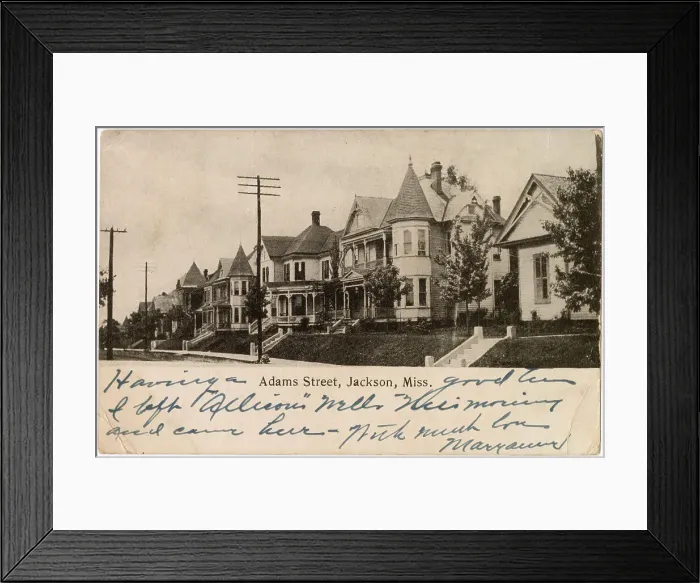 Having a Adams Street, Jackson, Miss. good time
I left "Allison's" Wells this morning
and came here - With much love